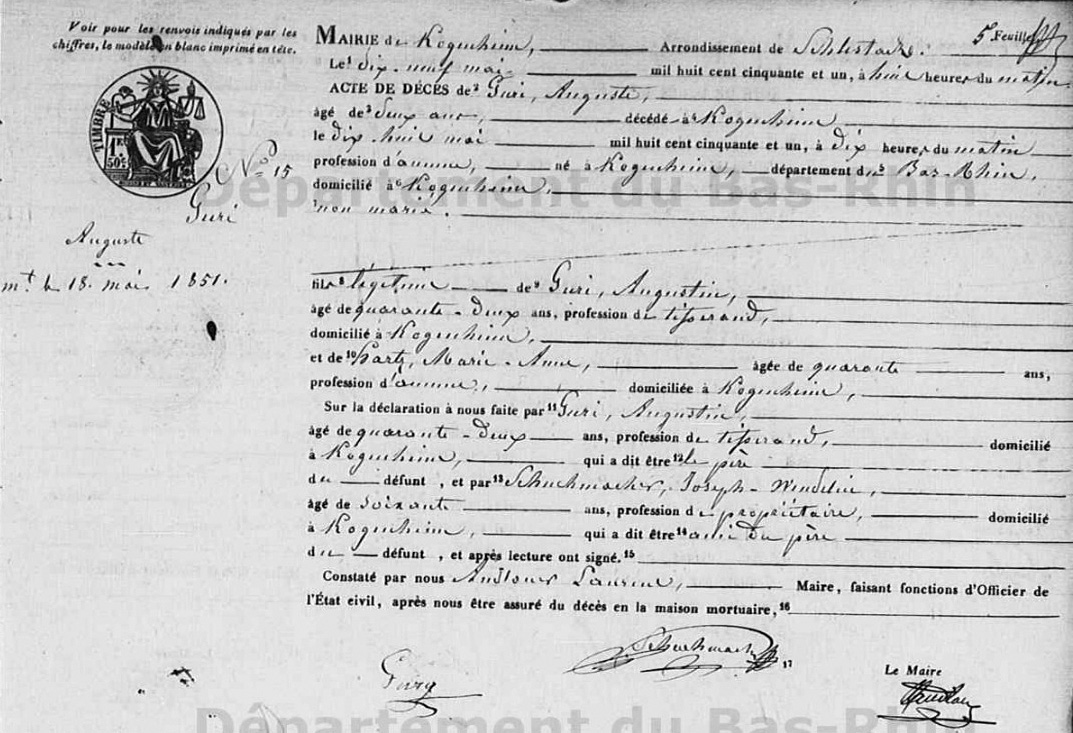 Voir pour les renvois indiqués par les
chiffres, le modèle en blanc imprimé en tête.
5 Feuillet
MAIRIE de Kogenheim, Arrondissement de Schlestadt.
Le¹ dix-neuf mai mil huit cent cinquante et un, à huit heures du matin
ACTE DE DÉCÈS de² Guri, Auguste,
âgé de³ deux ans, décédé à⁴ Kogenheim
le dix huit mai mil huit cent cinquante et un, à dix heures du matin
profession d'aucune, né à Kogenheim, département du⁵ Bas-Rhin,
domicilié à⁶ Kogenheim,
⁷non marié.
TIMBRE
1F.
50c.
N° 15
Guri
Auguste
mt le 18. mai 1851.
fils⁸ légitime de⁹ Guri, Augustin,
âgé de quarante-deux ans, profession de tisserand,
domicilié à Kogenheim,
et de¹⁰ Hartz, Marie-Anne, âgée de quarante ans,
profession d'aucune, domiciliée à Kogenheim,
Sur la déclaration à nous faite par¹¹ Guri, Augustin,
âgé de quarante-deux ans, profession de tisserand, domicilié
à Kogenheim, qui a dit être¹² le père
du défunt, et par¹³ Schuhmacher, Joseph-Wendelin,
âgé de soixante ans, profession de propriétaire, domicilié
à Kogenheim, qui a dit être¹⁴ ami du père
du défunt, et après lecture ont signé.¹⁵
Constaté par nous Laurent, Maire, faisant fonctions d'Officier de
l'État civil, après nous être assuré du décès en la maison mortuaire,¹⁶
Schuhmacher ¹⁷
Le Maire
Département du Bas-Rhin
Département du Bas-Rhin